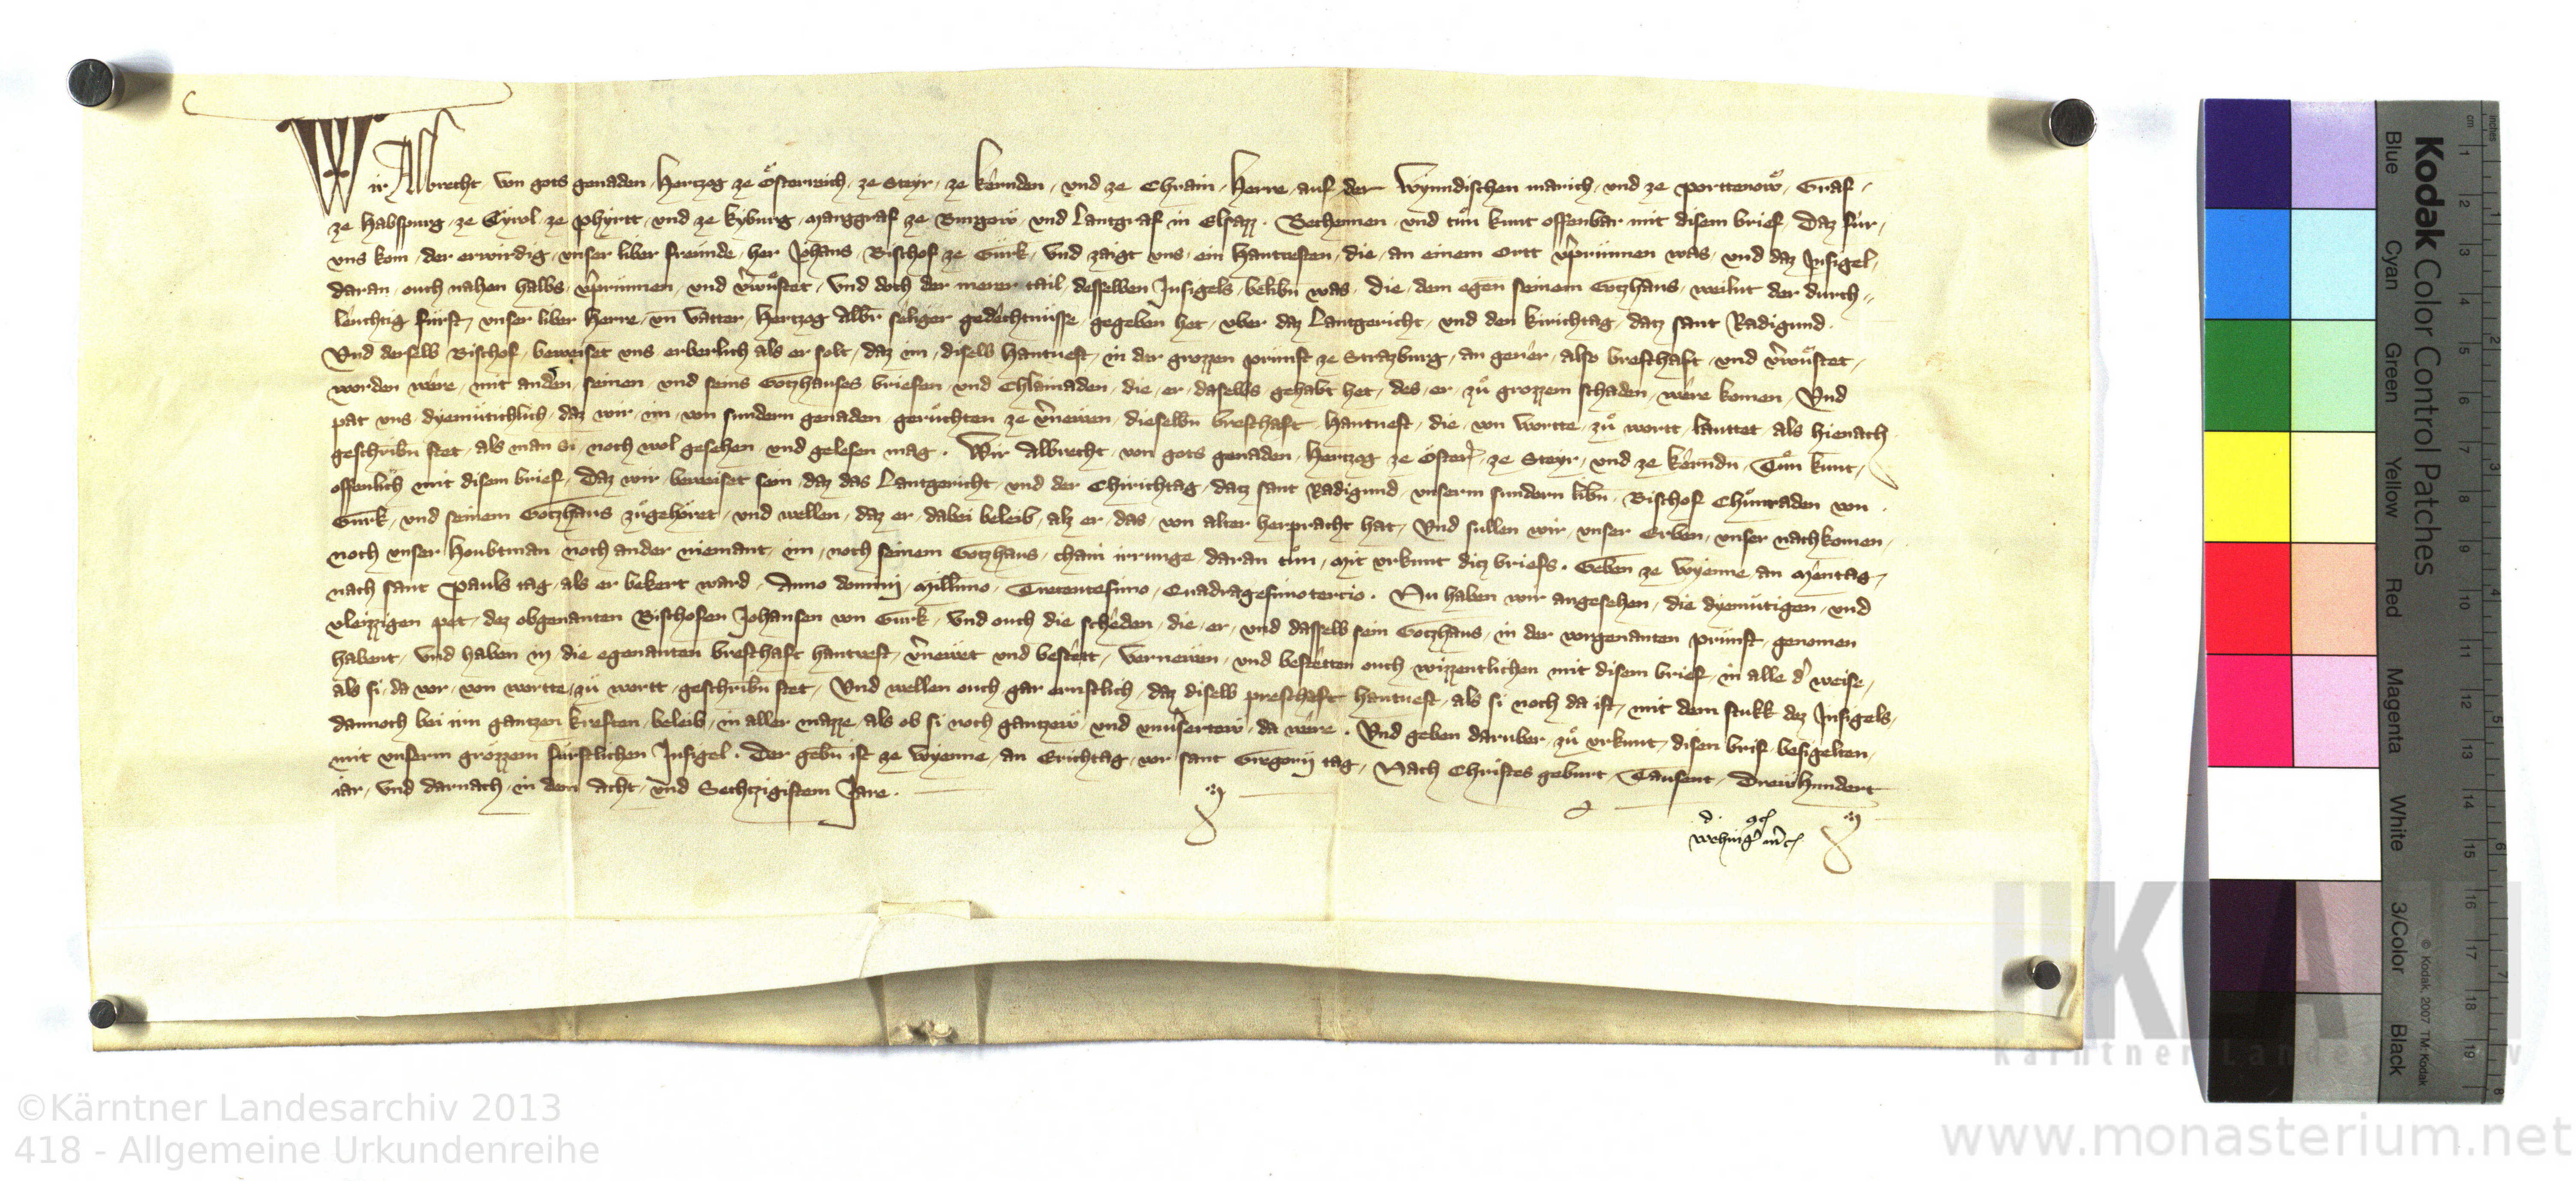 Wir Albrecht von gots genaden, Hertzog ze Österreich, ze Steyr, ze Kernden, vnd ze Chrain, Herre, auf der Wynndischen march, vnd ze Porttenow, Graf,
ze Habspurg, ze Tyrol, ze Phyrtt, vnd ze Kyburg, Marggraf ze Burgow, vnd Lantgraf in Elsazz. Bechennen, vnd tůn kunt offenbar, mit disem brief, Daz für,
vns kom, der erwirdig, vnser liber freunde, her Johans, Bischof ze Gurk, vnd zaigt vns, ein Hantuesten, die, an einem Ortt v̓prunnen was, vnd daz Insigel,
daran, ouch nahen halbs, v̓prunnen, vnd v̓wůstet, Vnd doch der merer tail, desselben Insigels, belibn̄ was, die, dem egen̄ seinem Gotzhaus, weilnt der durch-
leuchtig fürst, vnser liber Herre, vn̄ Vatter, Hertzog Albr̄ seliger gedechtnüsse, gegeben het, vber daz Lantgericht, vnd den kirichtag, datz sant Radigund.
Vnd derselb Bischof, beweiset vns, erberlich als er solt, daz im, diselb Hantuest, in der grozzen prunst ze Strazburg, an geuer, also bresthaft, vnd v̓wůstet,
worden were, mit andn̄, seinen, vnd seins Gotzhauses briefen, vnd Chlainaden, die, er, daselbs gehabt het, des, er, zů grozzem schaden, were komen, Vnd
pat vns, dyemutichlich, daz wir, im, von sundern genaden, gerůchten ze v̓newen, dieselbn̄ bresthaft, Hantuest, die, von Wortte, zů wortt, lauttet, als hienach
geschribn̄ stet, als man si, noch wol gesehen, vnd gelesen mag. Wir Albrecht, von gots genaden, Hertzog ze Österr̓, ze Steyr, vnd ze Kerndn̄, Tůn kunt,
offenlich mit disem brief, Daz wir, beweiset sein, daz das Lantgericht, vnd der Chirichtag, datz sant Radigund, vnserm sundern libn̄, Bischof Chůnraden von
Gurk, vnd seinem Gotzhaus zůgehöret, vnd wellen, daz er, dabei beleib, alz er, das, von alter herpracht hat, Vnd sullen wir, vnser Erben, vnser nachkomen,
noch vnser Houbtman, noch ander niemant, im, noch seinem Gotzhaus, chain irrunge, daran tůn, Mit vrkunt ditz briefs. Geben ze Wyenne, an Mentag,
nach sant Pauls tag, als er bekert ward, Anno domini, Mill̄imo, Trecentesimo, Quadragesimotercio. Nu haben wir angesehen, die dyemütigen, vnd
vleizzigen pet, dez obgenanten Bischofen Johansen von Gurk, vnd ouch die scheden, die, er, vnd dasselb sein Gotzhaus, in der vorgenanten prunst, genomen
habent, Vnd haben in, die egenanten bresthaft hantuest, v̓newet vnd bestett, Vernewen, vnd bestetten ouch wizzentlichen mit disem brief, in alle d̓ weise,
als si, da vor, von wortte, zů wortt, geschribn̄ stet, Vnd wellen ouch, gar ernstlich, daz diselb presthaft hantuest, als si noch da ist, mit dem stukk dez Insigels,
dannoch bei irn gantzen kreften, beleib, in aller mazze, als ob si noch gantzew, vnd vnuserttew, da were. Vnd geben daruber, zů vrkunt, disen brif, besigelten,
mit vnserm grozzem fürstlichen Insigel. Der gebn̄ ist ze Wyenne, an Erichtag, vor sant Gregorij tag, Nach Christes geburt, Tausent, Drewhundert
iar, Vnd darnach, in dem Acht, vnd Sechtzigistem Jare.
d.
wehing̓ m̄
©Kärntner Landesarchiv 2013
418 - Allgemeine Urkundenreihe
www.monasterium.net
Kodak Color Control Patches
Blue Cyan Green Yellow Red Magenta White 3/Color Black
© Kodak, 2007 TM: Kodak
inches 1 2 3 4 5 6 7 8
cm 1 2 3 4 5 6 7 8 9 10 11 12 13 14 15 16 17 18 19